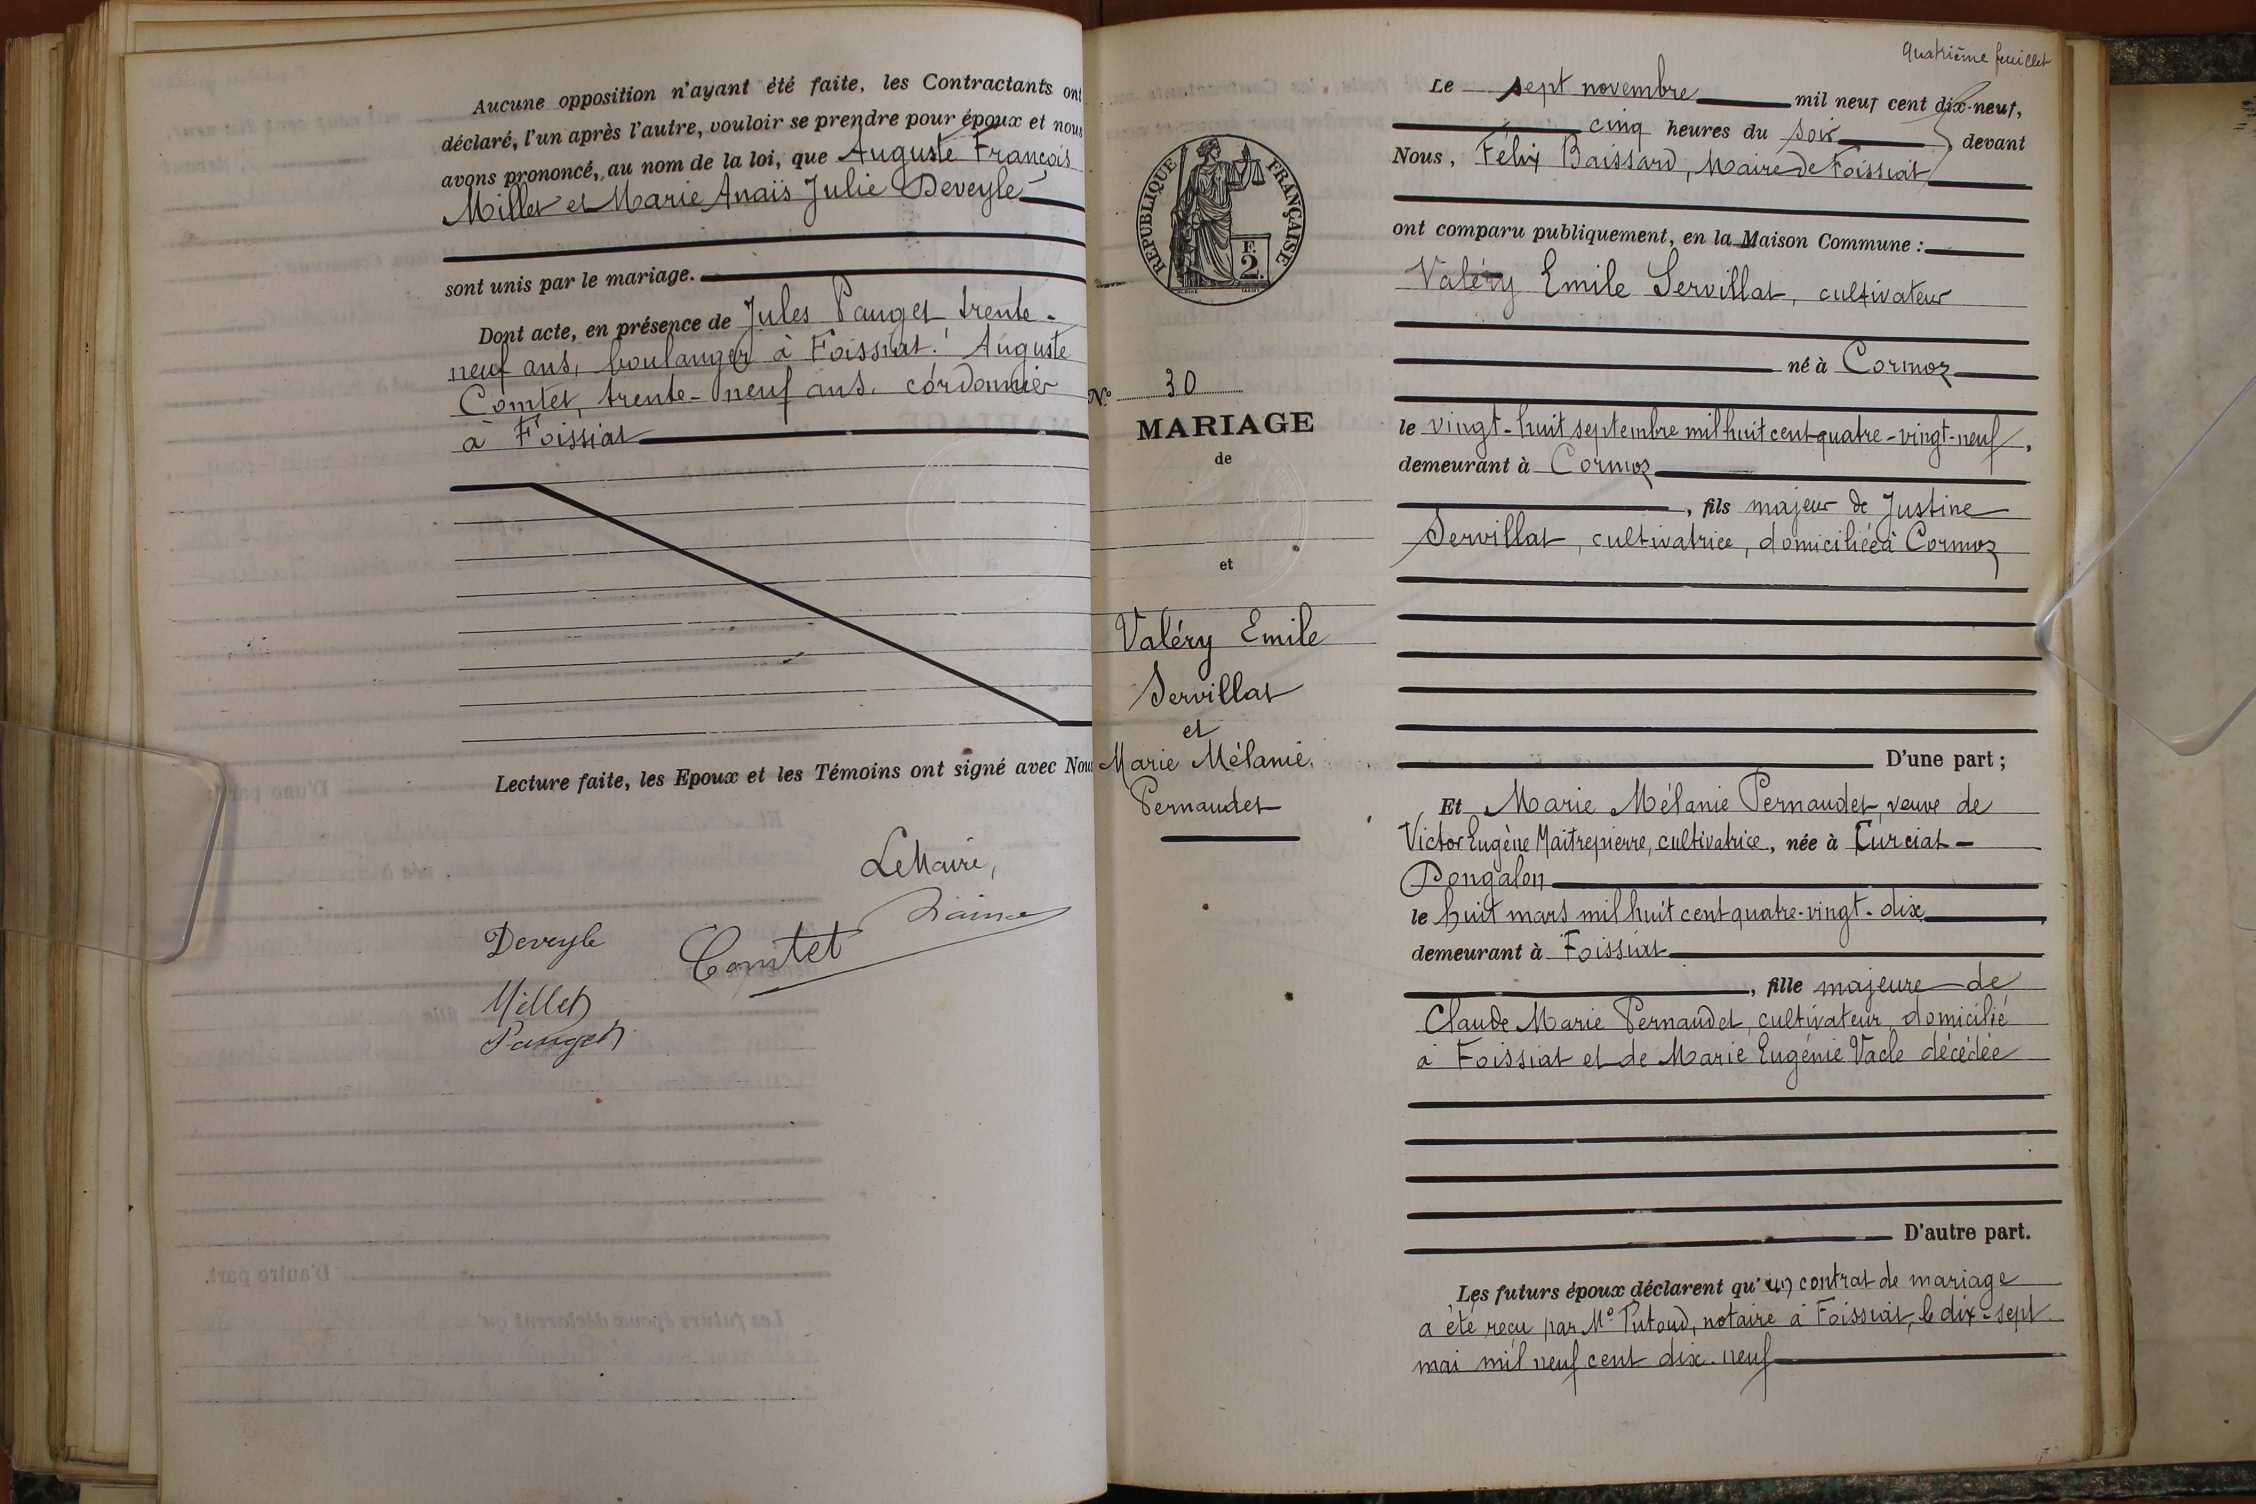 Aucune opposition n'ayant été faite, les Contractants ont
déclaré, l'un après l'autre, vouloir se prendre pour époux et nous
avons prononcé, au nom de la loi, que Auguste François
Millet et Marie Anaïs Julie Deveyle
sont unis par le mariage.
Dont acte, en présence de Jules Pauget trente-
neuf ans, boulanger à Foissiat. Auguste
Comtet, trente-neuf ans, cordonnier
à Foissiat
Lecture faite, les Epoux et les Témoins ont signé avec Nou
Le Maire,
Deveyle
Comtet
Millet
Pauget
Quatrième feuillet
RÉPUBLIQUE FRANÇAISE
F.
2
No 30
MARIAGE
de
et
Valéry Emile
Servillat
et
Marie Mélanie
Pernaudet
Le sept novembre mil neuf cent dix-neuf,
cinq heures du soir devant
Nous, Félix Baissard, Maire de Foissiat
ont comparu publiquement, en la Maison Commune :
Valéry Emile Servillat, cultivateur
né à Cormoz
le vingt-huit septembre mil huit cent quatre-vingt-neuf,
demeurant à Cormoz
, fils majeur de Justine
Servillat, cultivatrice, domiciliée à Cormoz
D'une part ;
Et Marie Mélanie Pernaudet, veuve de
Victor Eugène Maitrepierre, cultivatrice, née à Curciat-
Dongalon
le huit mars mil huit cent quatre-vingt-dix
demeurant à Foissiat
, fille majeure de
Claude Marie Pernaudet, cultivateur domicilié
à Foissiat et de Marie Eugénie Vacle décédée
D'autre part.
Les futurs époux déclarent qu'un contrat de mariage
a été reçu par Me Putoud, notaire à Foissiat, le dix-sept
mai mil neuf cent dix-neuf